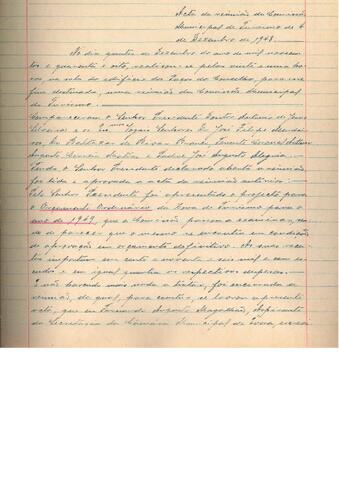 Acta da reunião da Comissão
Municipal de Turismo de 4
de Dezembro de 1948.
No dia quatro de Dezembro do ano de mil novecen-
tos e quarenta e oito, realizou-se pelas vinte e uma ho-
ras, na sala do edifício dos Paços do Concelho, para esse
fim destinada, uma reunião da Comissão Municipal
de Turismo.
Compareceram o Senhor Presidente
e os Vogais Senhores Dr. José Filipe
Dr. Baltazar de Tenente
Augusto e Padre José Augusto Alegria.
Tendo o Senhor Presidente declarado aberta a reunião,
foi lida e aprovada a acta da reunião anterior.
Pelo Senhor Presidente foi apresentado o projecto para
o Orçamento Ordinário da Zona de Turismo para o
ano de 1949, que a Comissão passou a examinar, sen-
do de parecer que o mesmo se encontra em condições
de aprovação em orçamento definitivo. As suas recei-
tas importam em cento e noventa e seis mil e cem es-
cudos e em igual quantia as respectivas despesas.
E não havendo mais nada a tratar, foi encerrada a
reunião, da qual, para constar, se lavrou a presente
acta, que eu Augusto Magalhães, Aspirante
da Secretaria da Câmara Municipal de Évora,